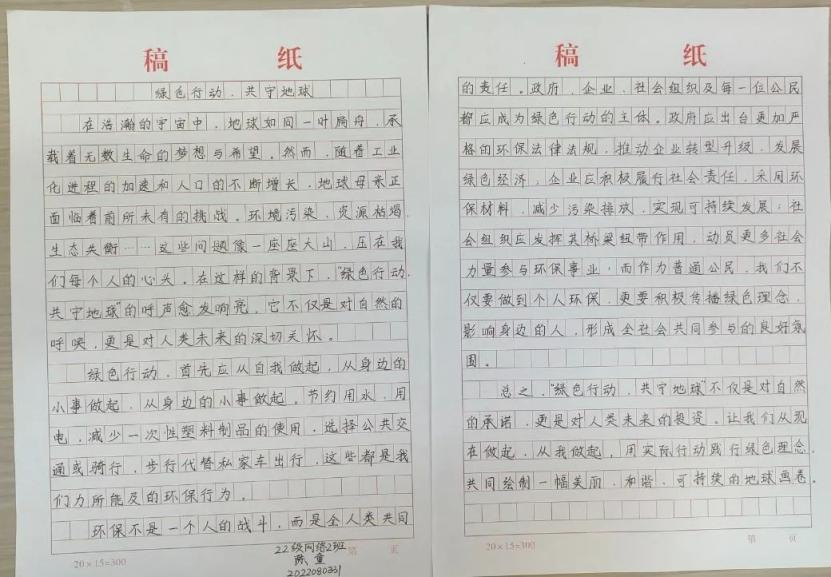 稿 纸
绿色行动,共守地球
在浩瀚的宇宙中,地球如同一叶扁舟,承
载着无数生命的梦想与希望。然而,随着工业
化进程的加速和人口的不断增长,地球母亲正
面临着前所未有的挑战。环境污染、资源枯竭、
生态失衡……这些问题像一座座大山,压在我
们每个人的心头。在这样的背景下,“绿色行动,
共守地球”的呼声愈发响亮,它不仅是对自然的
呼唤,更是对人类未来的深切关怀。
绿色行动,首先应从自我做起,从身边的
小事做起,从身边的小事做起。节约用水、用
电,减少一次性塑料制品的使用,选择公共交
通或骑行、步行代替私家车出行,这些都是我
们力所能及的环保行为。
环保不是一个人的战斗,而是全人类共同
20×15=300
第 页
22级网络2班
陈童
2022080331
稿 纸
的责任。政府、企业、社会组织及每一位公民
都应成为绿色行动的主体。政府应出台更加严
格的环保法律法规,推动企业转型升级,发展
绿色经济,企业应积极履行社会责任,采用环
保材料,减少污染排放,实现可持续发展;社
会组织应发挥其桥梁纽带作用,动员更多社会
力量参与环保事业;而作为普通公民,我们不
仅要做到个人环保,更要积极传播绿色理念,
影响身边的人,形成全社会共同参与的良好氛
围。
总之,“绿色行动,共守地球”不仅是对自然
的承诺,更是对人类未来的投资。让我们从现
在做起,从我做起,用实际行动践行绿色理念,
共同绘制一幅美丽、和谐、可持续的地球画卷。
20×15=300
第 页